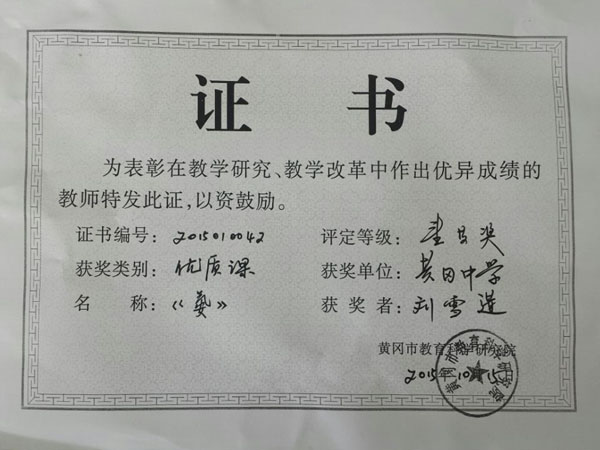 证书
为表彰在教学研究、教学改革中作出优异成绩的
教师特发此证,以资鼓励。
证书编号：2015010042
评定等级：壹等奖
获奖类别：优质课
获奖单位：黄冈中学
名称：《氓》
获奖者：刘雪莲
黄冈市教育科学研究院
2015年10月15日